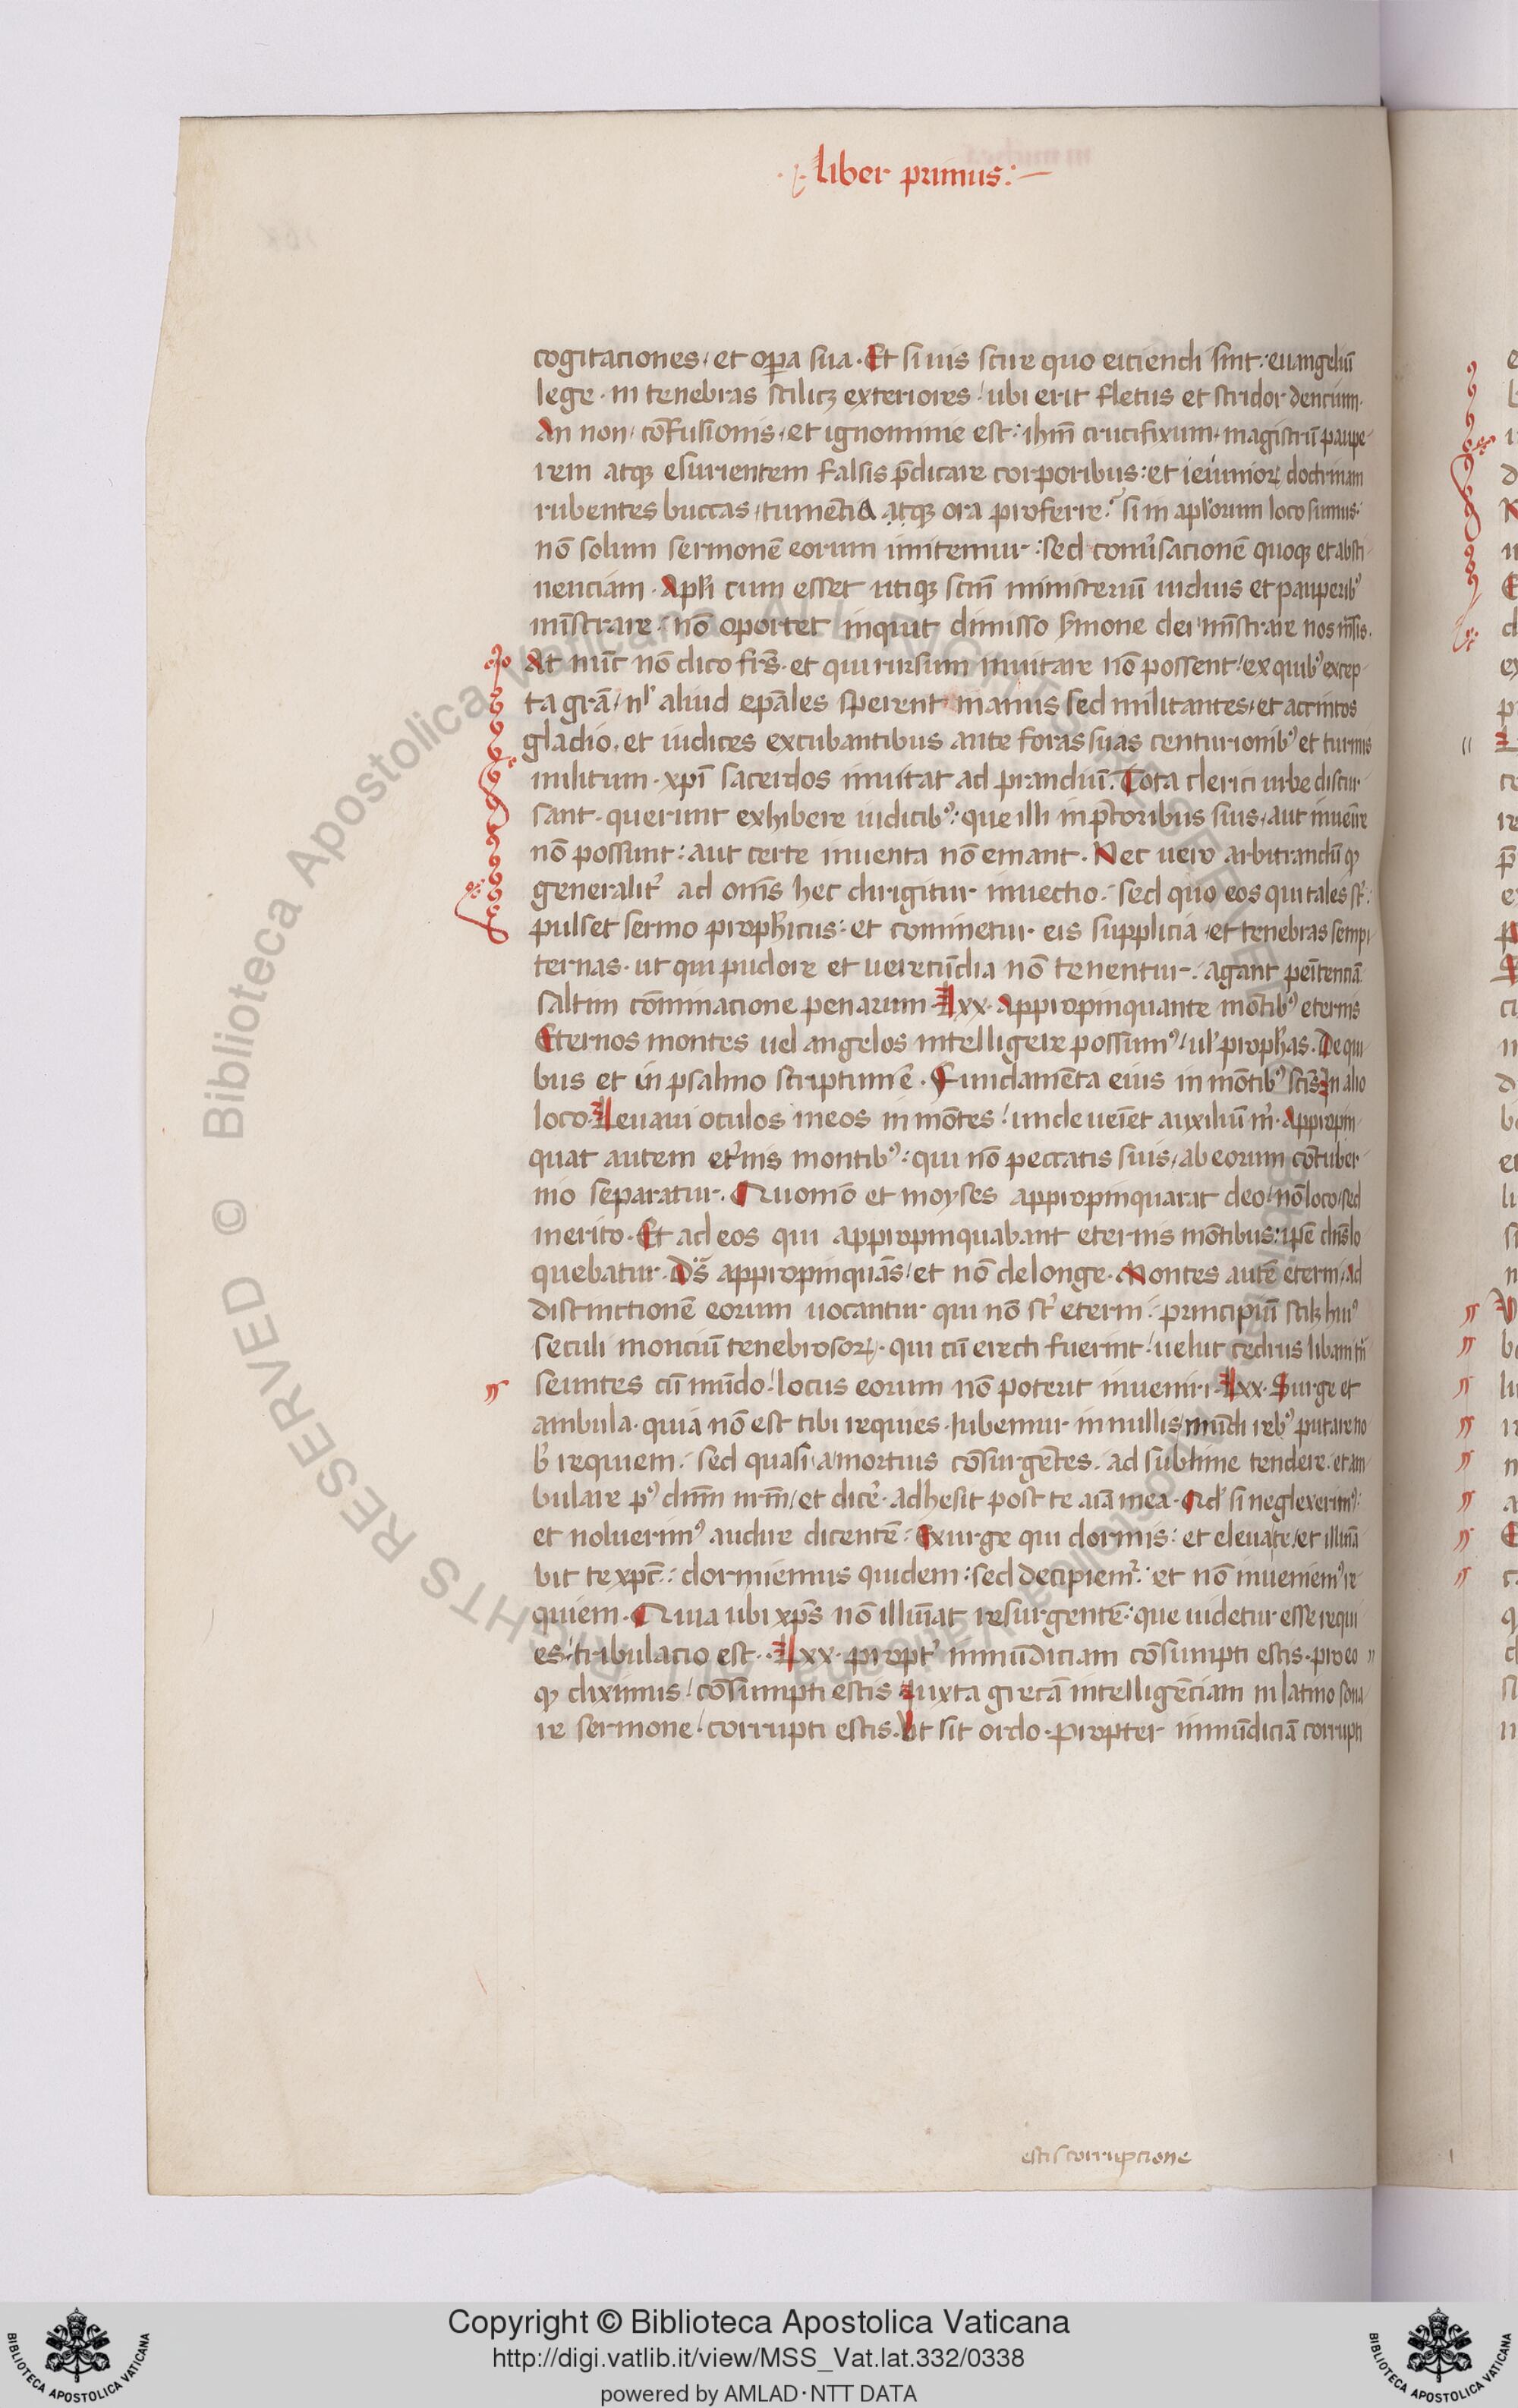 liber primus:
cogitaciones, et opa sua. Et si uis scire quo eiciendi sint: euangeliū
lege. in tenebras scilicꝫ exteriores, ubi erit fletus et stridor dencium.
An non, cōfusionis, et ignominie est: ihm̄ crucifixum. magistrū paupe-
rem atqꝫ esurientem falsis p̄dicare corporibus: et ieiunioꝝ doctrinam
rubentes buccas, tumentia atqꝫ ora proferre? si in apl'orum loco sumus:
nō solum sermonē eorum imitemur: sed conu̓sacionē quoqꝫ et absti-
nenciam. Apl'i cum esset utiqꝫ scm̄ ministeriū uiduis et pauperibꝰ
mīstrare. nō oportet inquit dimisso s̓mone dei mīstrare nos mēsis.
At nūc nō dico fr̄s. et qui rursum inuitare nō possent, ex quibꝰ excep-
ta grā, nl' aliud epāles sperent manus sed militantes, et accintos
gladio, et iudices excubantibus ante foras suas centurionibꝰ et turmis
militum. xpī sacerdos inuitat ad prandiū. Tota clerici urbe discur-
sant. querunt exhibere iudicibꝰ: que illi in p̄toribus suis, aut inuenire
nō possunt: aut certe inuenta nō emant. Nec uero arbitrandū qꝫ
generalit̓ ad om̄s hec dirigitur inuectio. sed quo eos qui tales st̄:
pulset sermo proph̓icus: et cominetur eis supplicia, et tenebras sempi-
ternas. ut qui pudore et uerecūdia nō tenentur. agant penītenciā
saltim cōminacione penarum. lxx. Appropinquante mōtibꝰ eternis
Eternos montes uel angelos intelligere possumꝰ, ul' proph̓as. De qui-
bus et in psalmo scriptum ē. Fundamēta eius in mōtibꝰ scīs In alio
loco. Leuaui oculos meos in mōtes, unde ueīet auxiliū m̓. Appropin-
quat autem et̓nis montibꝰ: qui nō peccatis suis, ab eorum cōtuber-
nio separatur. Quomō et moyses appropinquarat deo, nō loco, sed
merito. Et ad eos qui appropinquabant eternis mōtibus: ipse dn̄s lo-
quebatur. Ds̄ appropinquās, et nō de longe. Montes autē eterni, ad
distinctionē eorum uocantur qui nō st̄ eterni. principiū scilꝫ huiꝰ
seculi monciū tenebrosoꝝ. qui cū erecti fuerint, uelut cedrus libani trā-
seuntes cū mūdo, locus eorum nō poterit inueniri. lxx. Surge et
ambula. quia nō est tibi requies. Iubemur in nullis mūdi rebꝰ putare no-
b̓ requiem. sed quasi a mortuis cōsurgētes. ad sublime tendere. et am-
bulare pꝰ dnm̄ nrm̄, et dice̓. adhesit post te aīa mea. Qd' si neglexerimꝰ:
et noluerimꝰ audire dicentē: Exurge qui dormis: et eleuate, et illumī-
bit te xpc̄: dormiemus quidem: sed decipiem̓: et nō inueniemꝰ re-
quiem. Quia ubi xps̄ nō illumīat resurgentē: que uidetur esse requi-
es, tribulacio est. lxx. propt̓ inmūdiciam cōsumpti estis. pro eo
qꝫ diximus, cōsumpti estis Iuxta grecā intelligēciam in latino sona-
re sermone, corrupti estis. Vt sit ordo. propter inmūdiciā corrupti
estis corrupcione
Biblioteca Apostolica Vaticana ALL RIGHTS RESERVED ©
Copyright © Biblioteca Apostolica Vaticana
http://digi.vatlib.it/view/MSS_Vat.lat.332/0338
powered by AMLAD·NTT DATA
BIBLIOTECA APOSTOLICA VATICANA
BIBLIOTECA APOSTOLICA VATICANA